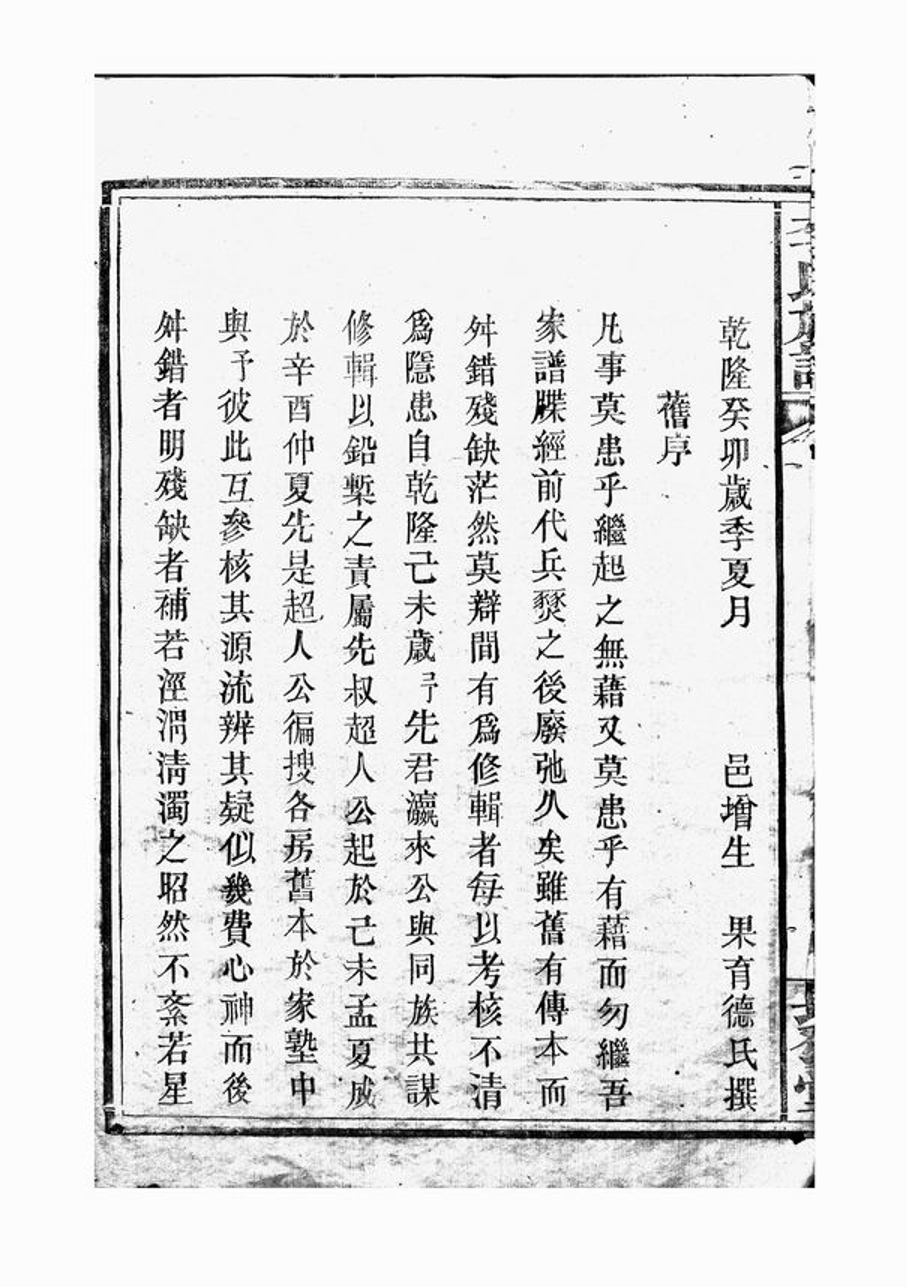 乾隆癸卯歲季夏月　邑增生　果育德氏撰
舊序
凡事莫患乎繼起之無藉又莫患乎有藉而勿繼吾
家譜牒經前代兵燹之後廢弛久矣雖舊有傳本而
舛錯殘缺茫然莫辯間有爲修輯者每以考核不清
爲隱患自乾隆己未歲予先君瀛來公與同族共謀
修輯以鉛槧之責屬先叔超人公起於己未孟夏成
於辛酉仲夏先是超人公徧搜各房舊本於家塾中
與予彼此互參核其源流辨其疑似幾費心神而後
舛錯者明殘缺者補若涇渭清濁之昭然不紊若星